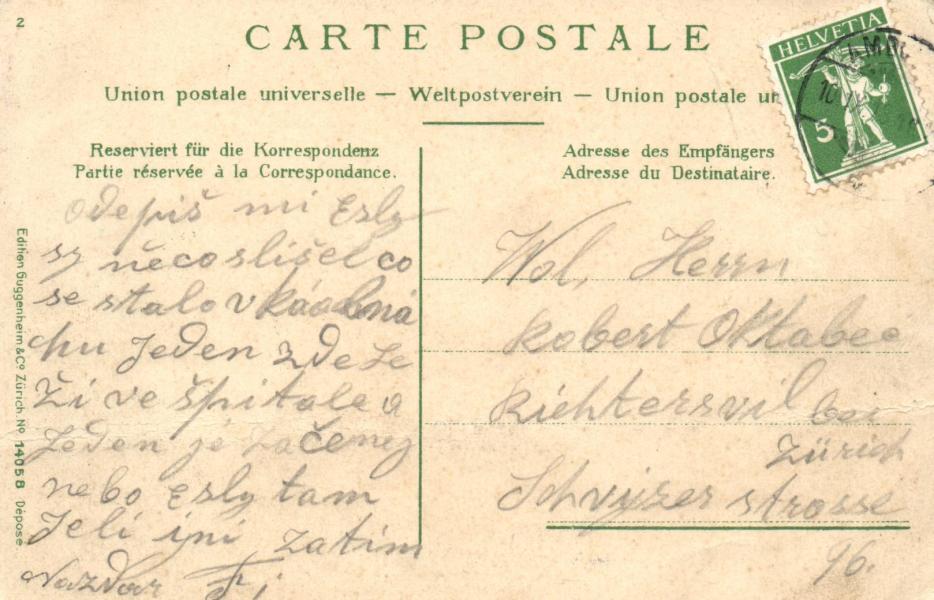 2
CARTE POSTALE
HELVETIA
5
Union postale universelle — Weltpostverein — Union postale un
Reserviert für die Korrespondenz
Partie réservée à la Correspondance.
Adresse des Empfängers
Adresse du Destinataire.
Odepiš mi Esly
sy něco slišel co
se stalo v
hu Jeden zde Le
Ži ve špitale a
Jeden je začeney
nebo Esly tam
Jeli ijni zatim
Nazdar
Wol, Herrn
Robert Oktabec
Richtersvil bei
Zürich
Schvyzer strosse
96.
Edition Guggenheim & Cº Zürich. Nº 14058 Déposé